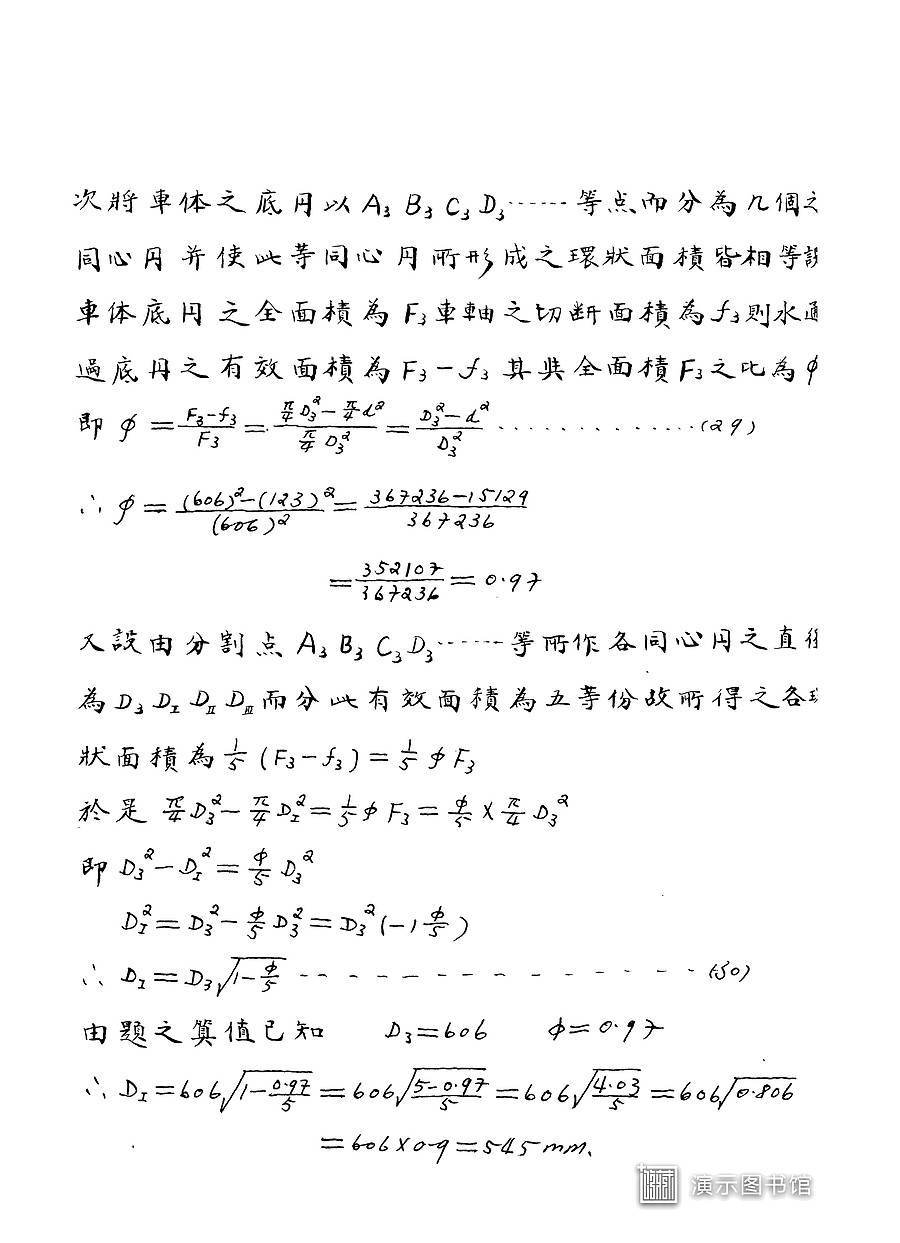 次將車体之底円以A₃ B₃ C₃ D₃……等点而分為几個之
同心円并使此等同心円所形成之環狀面積皆相等設
車体底円之全面積為F₃車軸之切断面積為f₃則水通
過底円之有效面積為F₃－f₃其與全面積F₃之比為φ
即 φ = (F₃-f₃)/F₃ = (π/4 D₃² - π/4 d²)/(π/4 D₃²) = (D₃² - d²)/D₃² …………(29)
∴ φ = ((606)²-(123)²)/(606)² = (367236-15129)/367236
= 352107/367236 = 0.97
又設由分割点 A₃ B₃ C₃ D₃……等所作各同心円之直徑
為 D₃ D_I D_II D_III 而分此有效面積為五等份故所得之各環
狀面積為 1/5 (F₃-f₃) = 1/5 φ F₃
於是 π/4 D₃² - π/4 D_I² = 1/5 φ F₃ = φ/5 × π/4 D₃²
即 D₃² - D_I² = φ/5 D₃²
D_I² = D₃² - φ/5 D₃² = D₃² (-1 φ/5)
∴ D_I = D₃√(1-φ/5) --------------- (30)
由題之算值已知 D₃=606 φ=0.97
∴ D_I = 606√(1-0.97/5) = 606√((5-0.97)/5) = 606√(4.03/5) = 606√0.806
= 606×0.9 = 545 mm.
演示图书馆